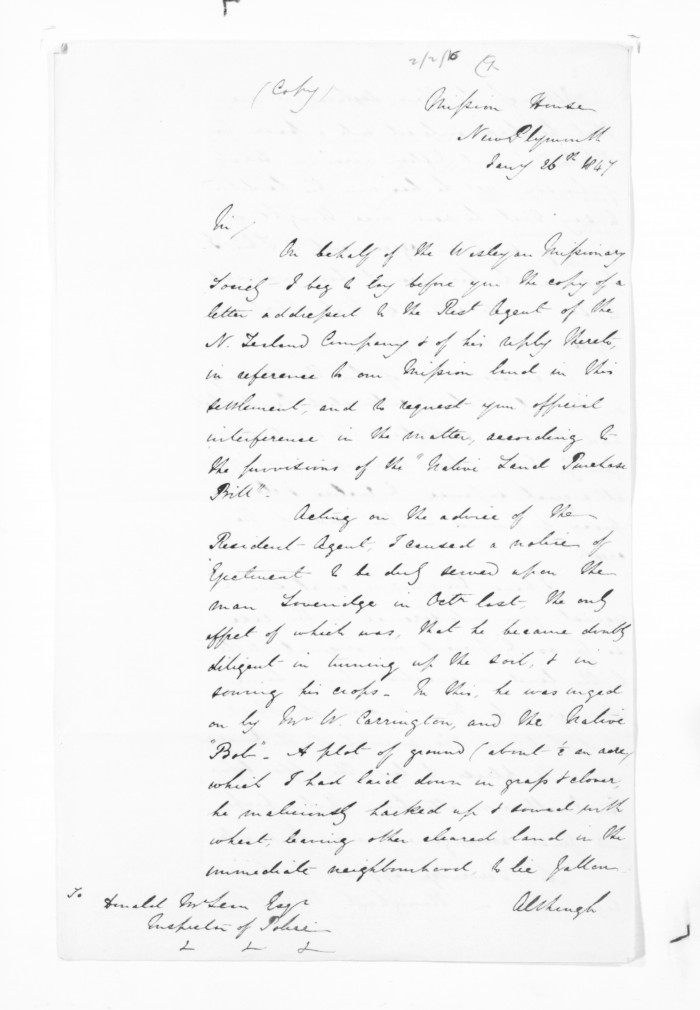 2/2/6
(Copy)
Mission House
New Plymouth
Jany 26th 1847
Sir/
On behalf of the Wesleyan Missionary
Society I beg to lay before you the copy of a
letter addressed to the Rest Agent of the
N. Zealand Company & of his reply thereto,
in reference to our Mission land in this
settlement, and to request your official
interference in the matter, according to
the provisions of the "Native Land Purchase
Bill"-
Acting on the advice of the
Resident Agent, I caused a notice of
Ejectment to be duly served upon the
man Loveridge in Octr last, the only
effect of which was, that he became doubly
diligent in turning up the soil, & in
sowing his crops- In this, he was urged
on by Mr W. Carrington, and the Native
"Bob"- A plot of ground (about ½ an acre)
which I had laid down in grass & clover,
he maliciously hacked up & sowed with
wheat, leaving other cleared land in the
immediate neighbourhood, to lie fallow
Although
To
Donald McLean Esqr
Inspector of Police